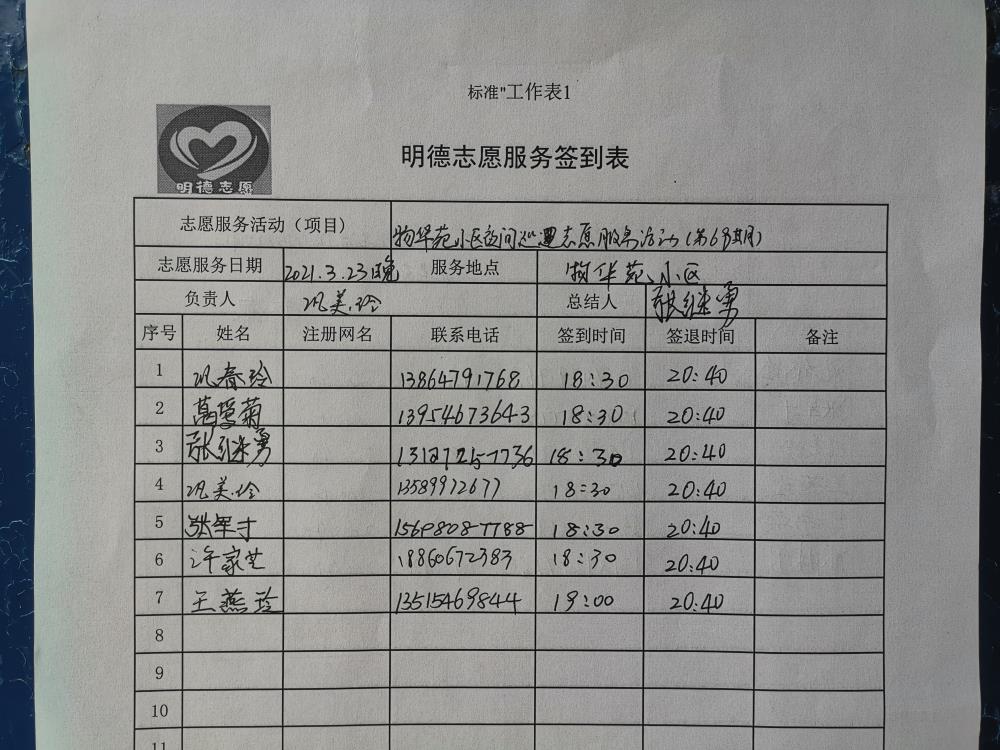 标准"工作表1
明德志愿
明德志愿服务签到表
志愿服务活动（项目） 物华苑小区夜间巡逻志愿服务活动(第68期)
志愿服务日期 2021.3.23日晚 服务地点 物华苑小区
负责人 巩美玲 总结人 张继勇
序号 姓名 注册网名 联系电话 签到时间 签退时间 备注
1 巩春玲 13864791768 18:30 20:40
2 菊 13954673643 18:30 20:40
3 张继勇 18:30 20:40
4 巩美玲 13589972677 18:30 20:40
5 张军才 15698087788 18:30 20:40
6 许家芝 18860672383 18:30 20:40
7 王燕玲 13515469844 19:00 20:40
8
9
10
11